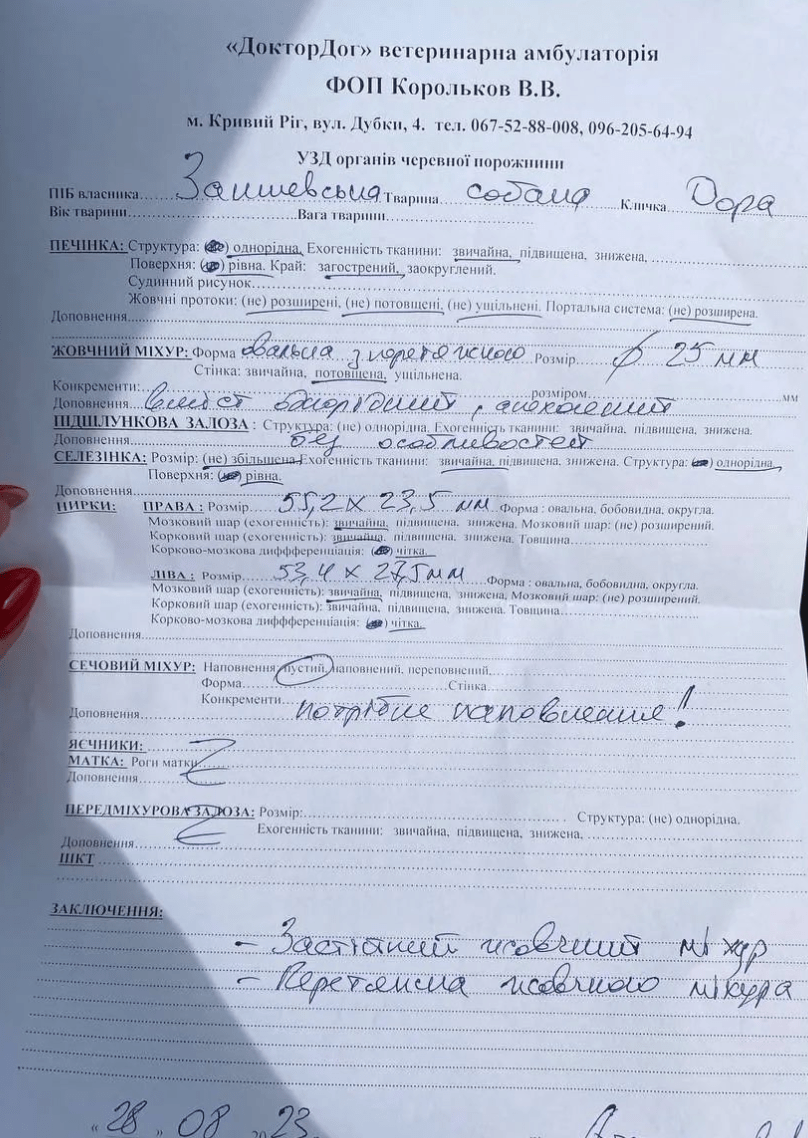 «ДокторДог» ветеринарна амбулаторія
ФОП Корольков В.В.
м. Кривий Ріг, вул. Дубки, 4. тел. 067-52-88-008, 096-205-64-94
УЗД органів черевної порожнини
ПІБ власника Тварина собака Кличка Дора
Вік тварини Вага тварини
ПЕЧІНКА: Структура: однорідна, Ехогенність тканини: звичайна, підвищена, знижена,
Поверхня: рівна. Край: загострений, заокруглений.
Судинний рисунок
Жовчні протоки: (не) розширені, (не) потовщені, (не) ущільнені. Портальна система: (не) розширена.
Доповнення
ЖОВЧНИЙ МІХУР: Форма овальна з перетяжкою Розмір 25 мм
Стінка: звичайна, потовщена, ущільнена.
Конкременти: розміром мм
Доповнення вміст однорідний, анехогенний
ПІДШЛУНКОВА ЗАЛОЗА: Структура: (не) однорідна, Ехогенність тканини: звичайна, підвищена, знижена.
Доповнення без особливостей
СЕЛЕЗІНКА: Розмір: (не) збільшена Ехогенність тканини: звичайна, підвищена, знижена. Структура: однорідна,
Поверхня: рівна.
Доповнення
НИРКИ: ПРАВА: Розмір 55,2 х 23,5 мм Форма : овальна, бобовидна, округла.
Мозковий шар (ехогенність): звичайна, підвищена, знижена. Мозковий шар: (не) розширений.
Корковий шар (ехогенність): звичайна, підвищена, знижена. Товщина
Корково-мозкова диффференціація: чітка.
ЛІВА : Розмір 53,4 х 27,5 мм Форма : овальна, бобовидна, округла.
Мозковий шар (ехогенність): звичайна, підвищена, знижена, Мозковий шар: (не) розширений.
Корковий шар (ехогенність): звичайна, підвищена, знижена. Товщина
Корково-мозкова диффференціація: чітка.
Доповнення
СЕЧОВИЙ МІХУР: Наповнення: пустий, наповнений, переповнений,
Форма Стінка
Конкременти
Доповнення потрібне наповнення!
ЯЄЧНИКИ:
МАТКА: Роги матки
Доповнення
ПЕРЕДМІХУРОВА ЗАЛОЗА: Розмір: Структура: (не) однорідна.
Ехогенність тканини: звичайна, підвищена, знижена,
Доповнення
ШКТ
ЗАКЛЮЧЕННЯ:
- Застійний жовчний міхур
- Перетяжка жовчного міхура
«28» 08 2023